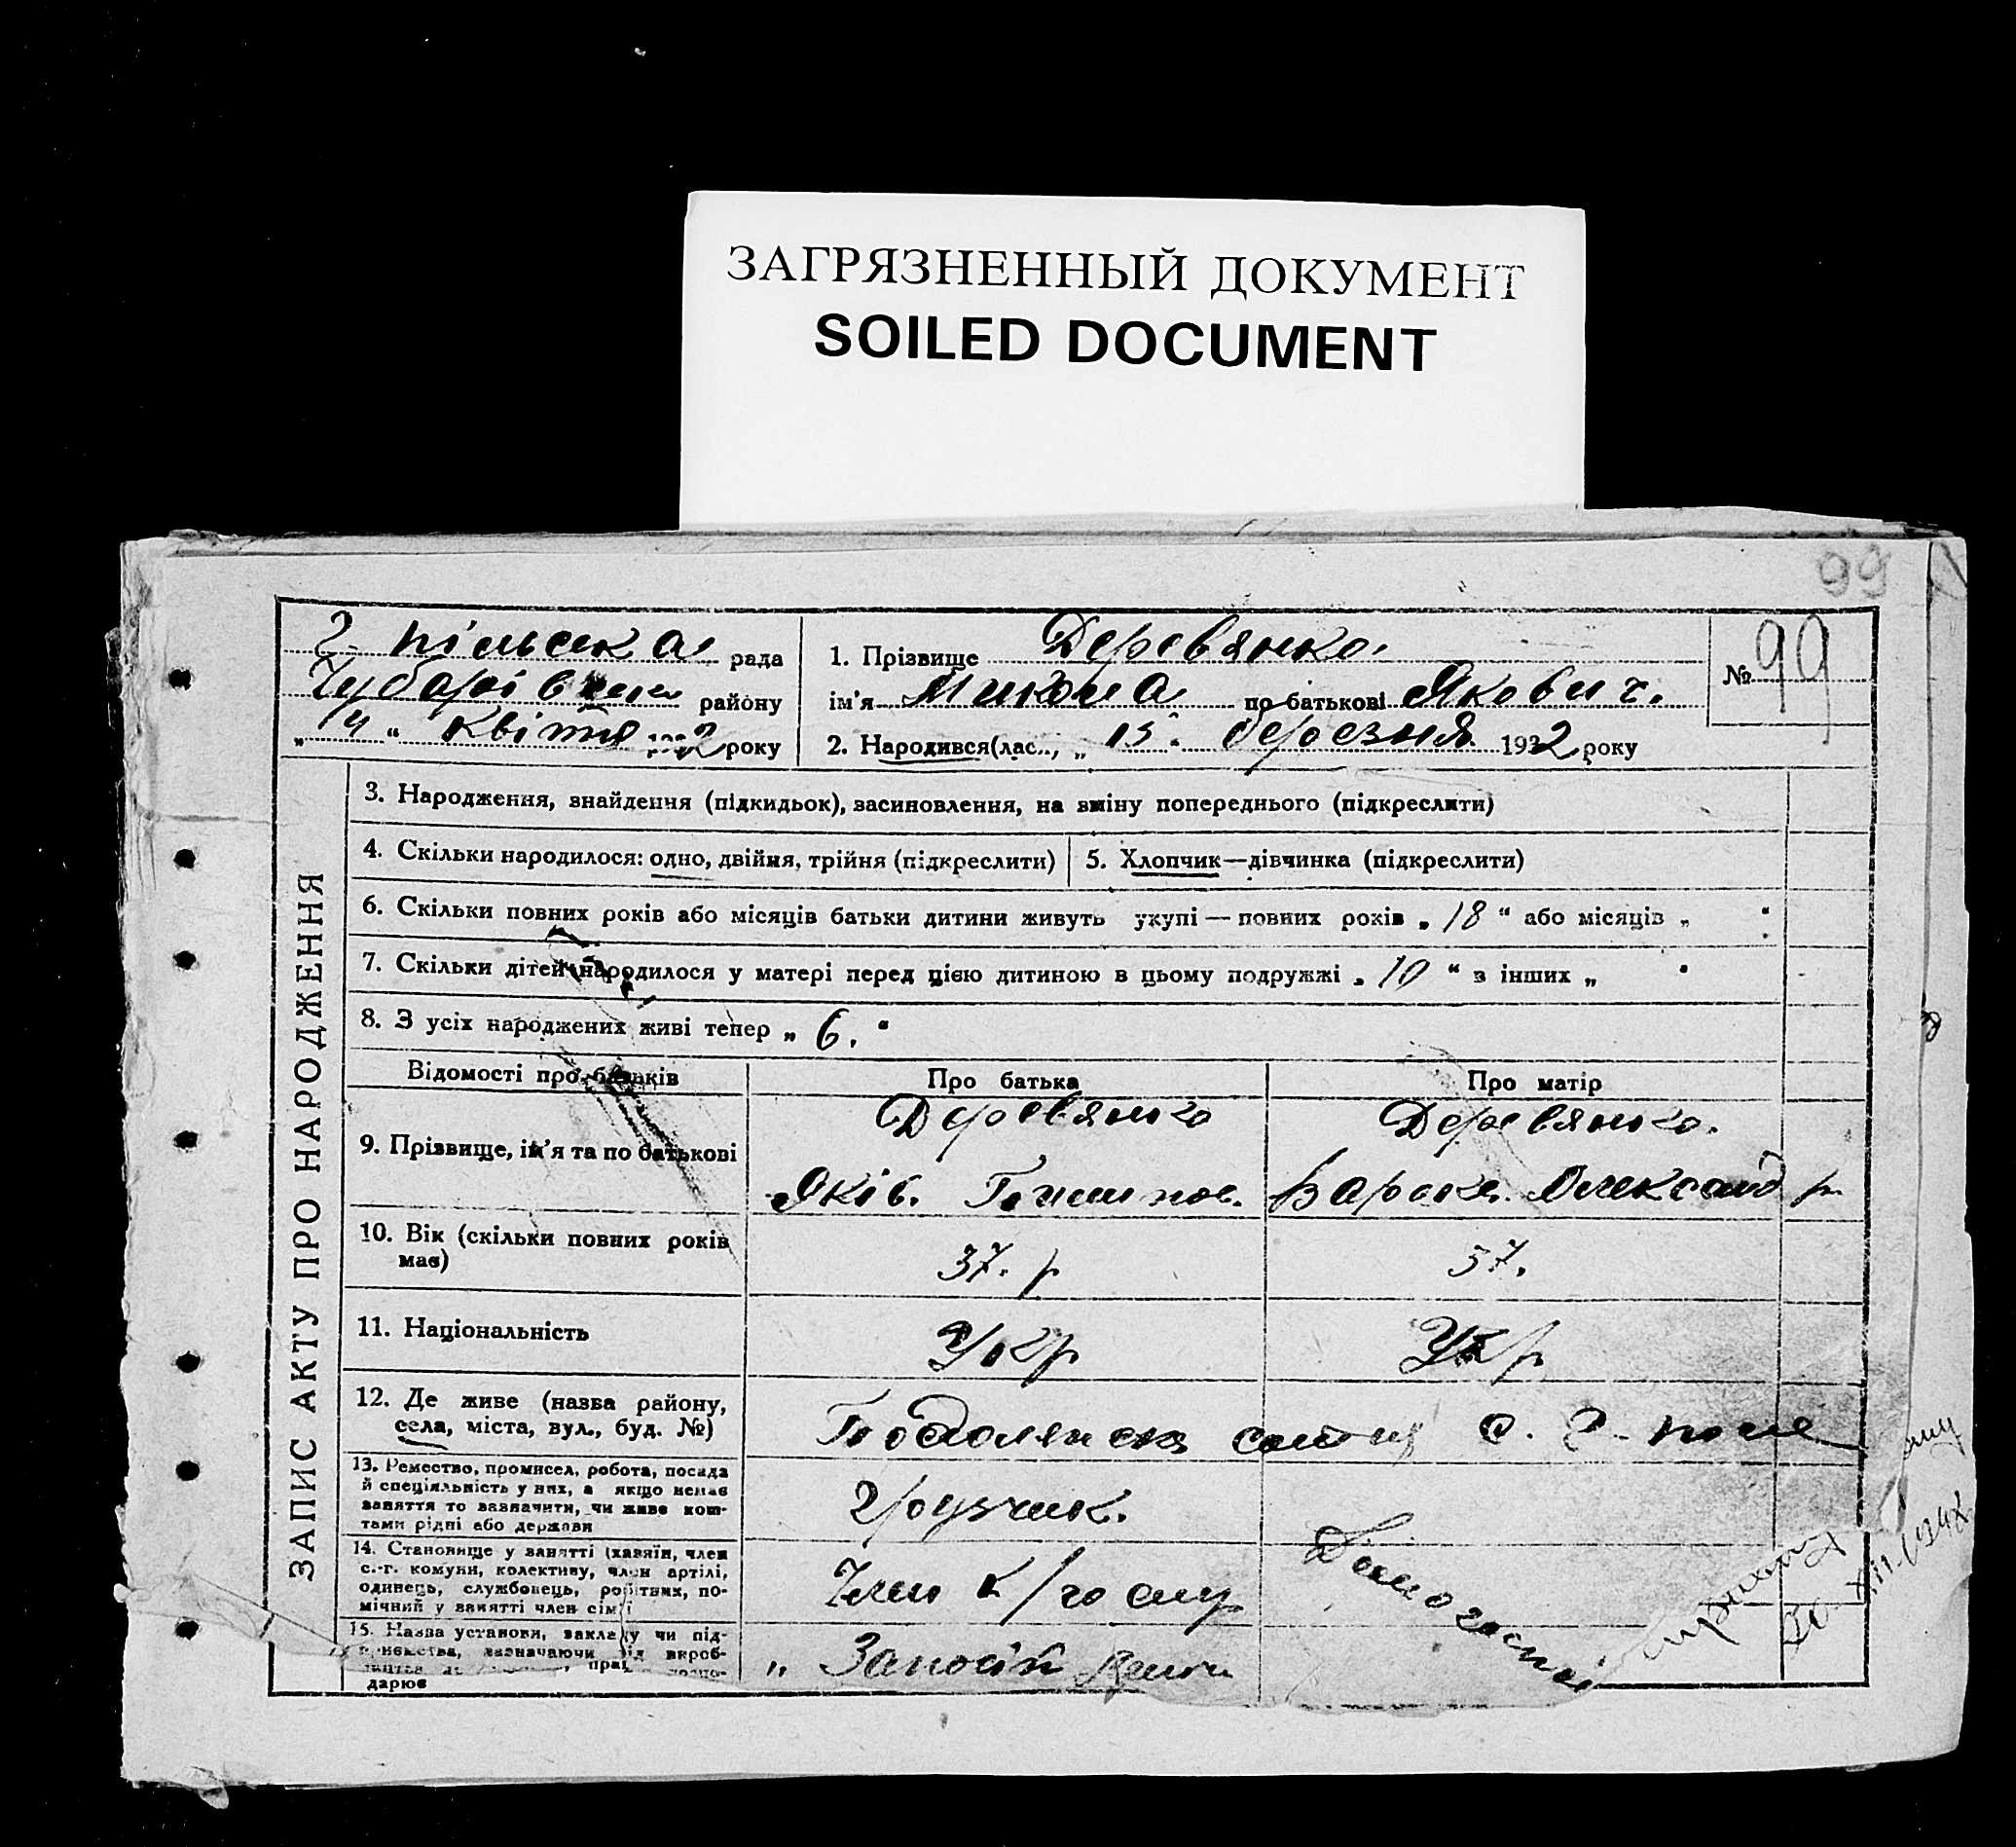 ЗАГРЯЗНЕННЫЙ ДОКУМЕНТ
SOILED DOCUMENT
99
Г. пільська рада
Чубарівськ району
„ 14 “ квітня 1932 року
1. Прізвище Деревянко.
ім’я Микола по батькові Якович.
2. Народився(лась), „ 15. березня 1932 року
№ 99
ЗАПИС АКТУ ПРО НАРОДЖЕННЯ
3. Народження, знайдення (підкидьок), засиновлення, на зміну попереднього (підкреслити)
4. Скільки народилося: одно, двійня, трійня (підкреслити)
5. Хлопчик—дівчинка (підкреслити)
6. Скільки повних років або місяців батьки дитини живуть укупі — повних років „ 18 “ або місяців „ “
7. Скільки дітей народилося у матері перед цією дитиною в цьому подружжі „ 10 “ з інших „ “
8. З усіх народжених живі тепер „ 6. “
Відомості про батьків
Про батька
Про матір
9. Прізвище, ім’я та по батькові
Деревянко
Яків.
Деревянко.
Олександр
10. Вік (скільки повних років
має)
37. р
37.
11. Національність
Укр
Укр
12. Де живе (назва району,
села, міста, вул., буд. №)
Подолянск сотня с. Г. поле
13. Ремество, промисел, робота, посада
й спеціяльність у них, а якщо немає
заняття то зазначити, чи живе кош-
тами рідні або держави
грузчик.
14. Становище у занятті (хазяїн, член
с.-г. комуни, колективу, член артілі,
одинець, службовець, робітник, по-
мічний у занятті член сім’ї
Член к/госпу
15. Назва установи, закладу чи під-
приємства, зазначаючи від вироб-
дарює
Домогоспо